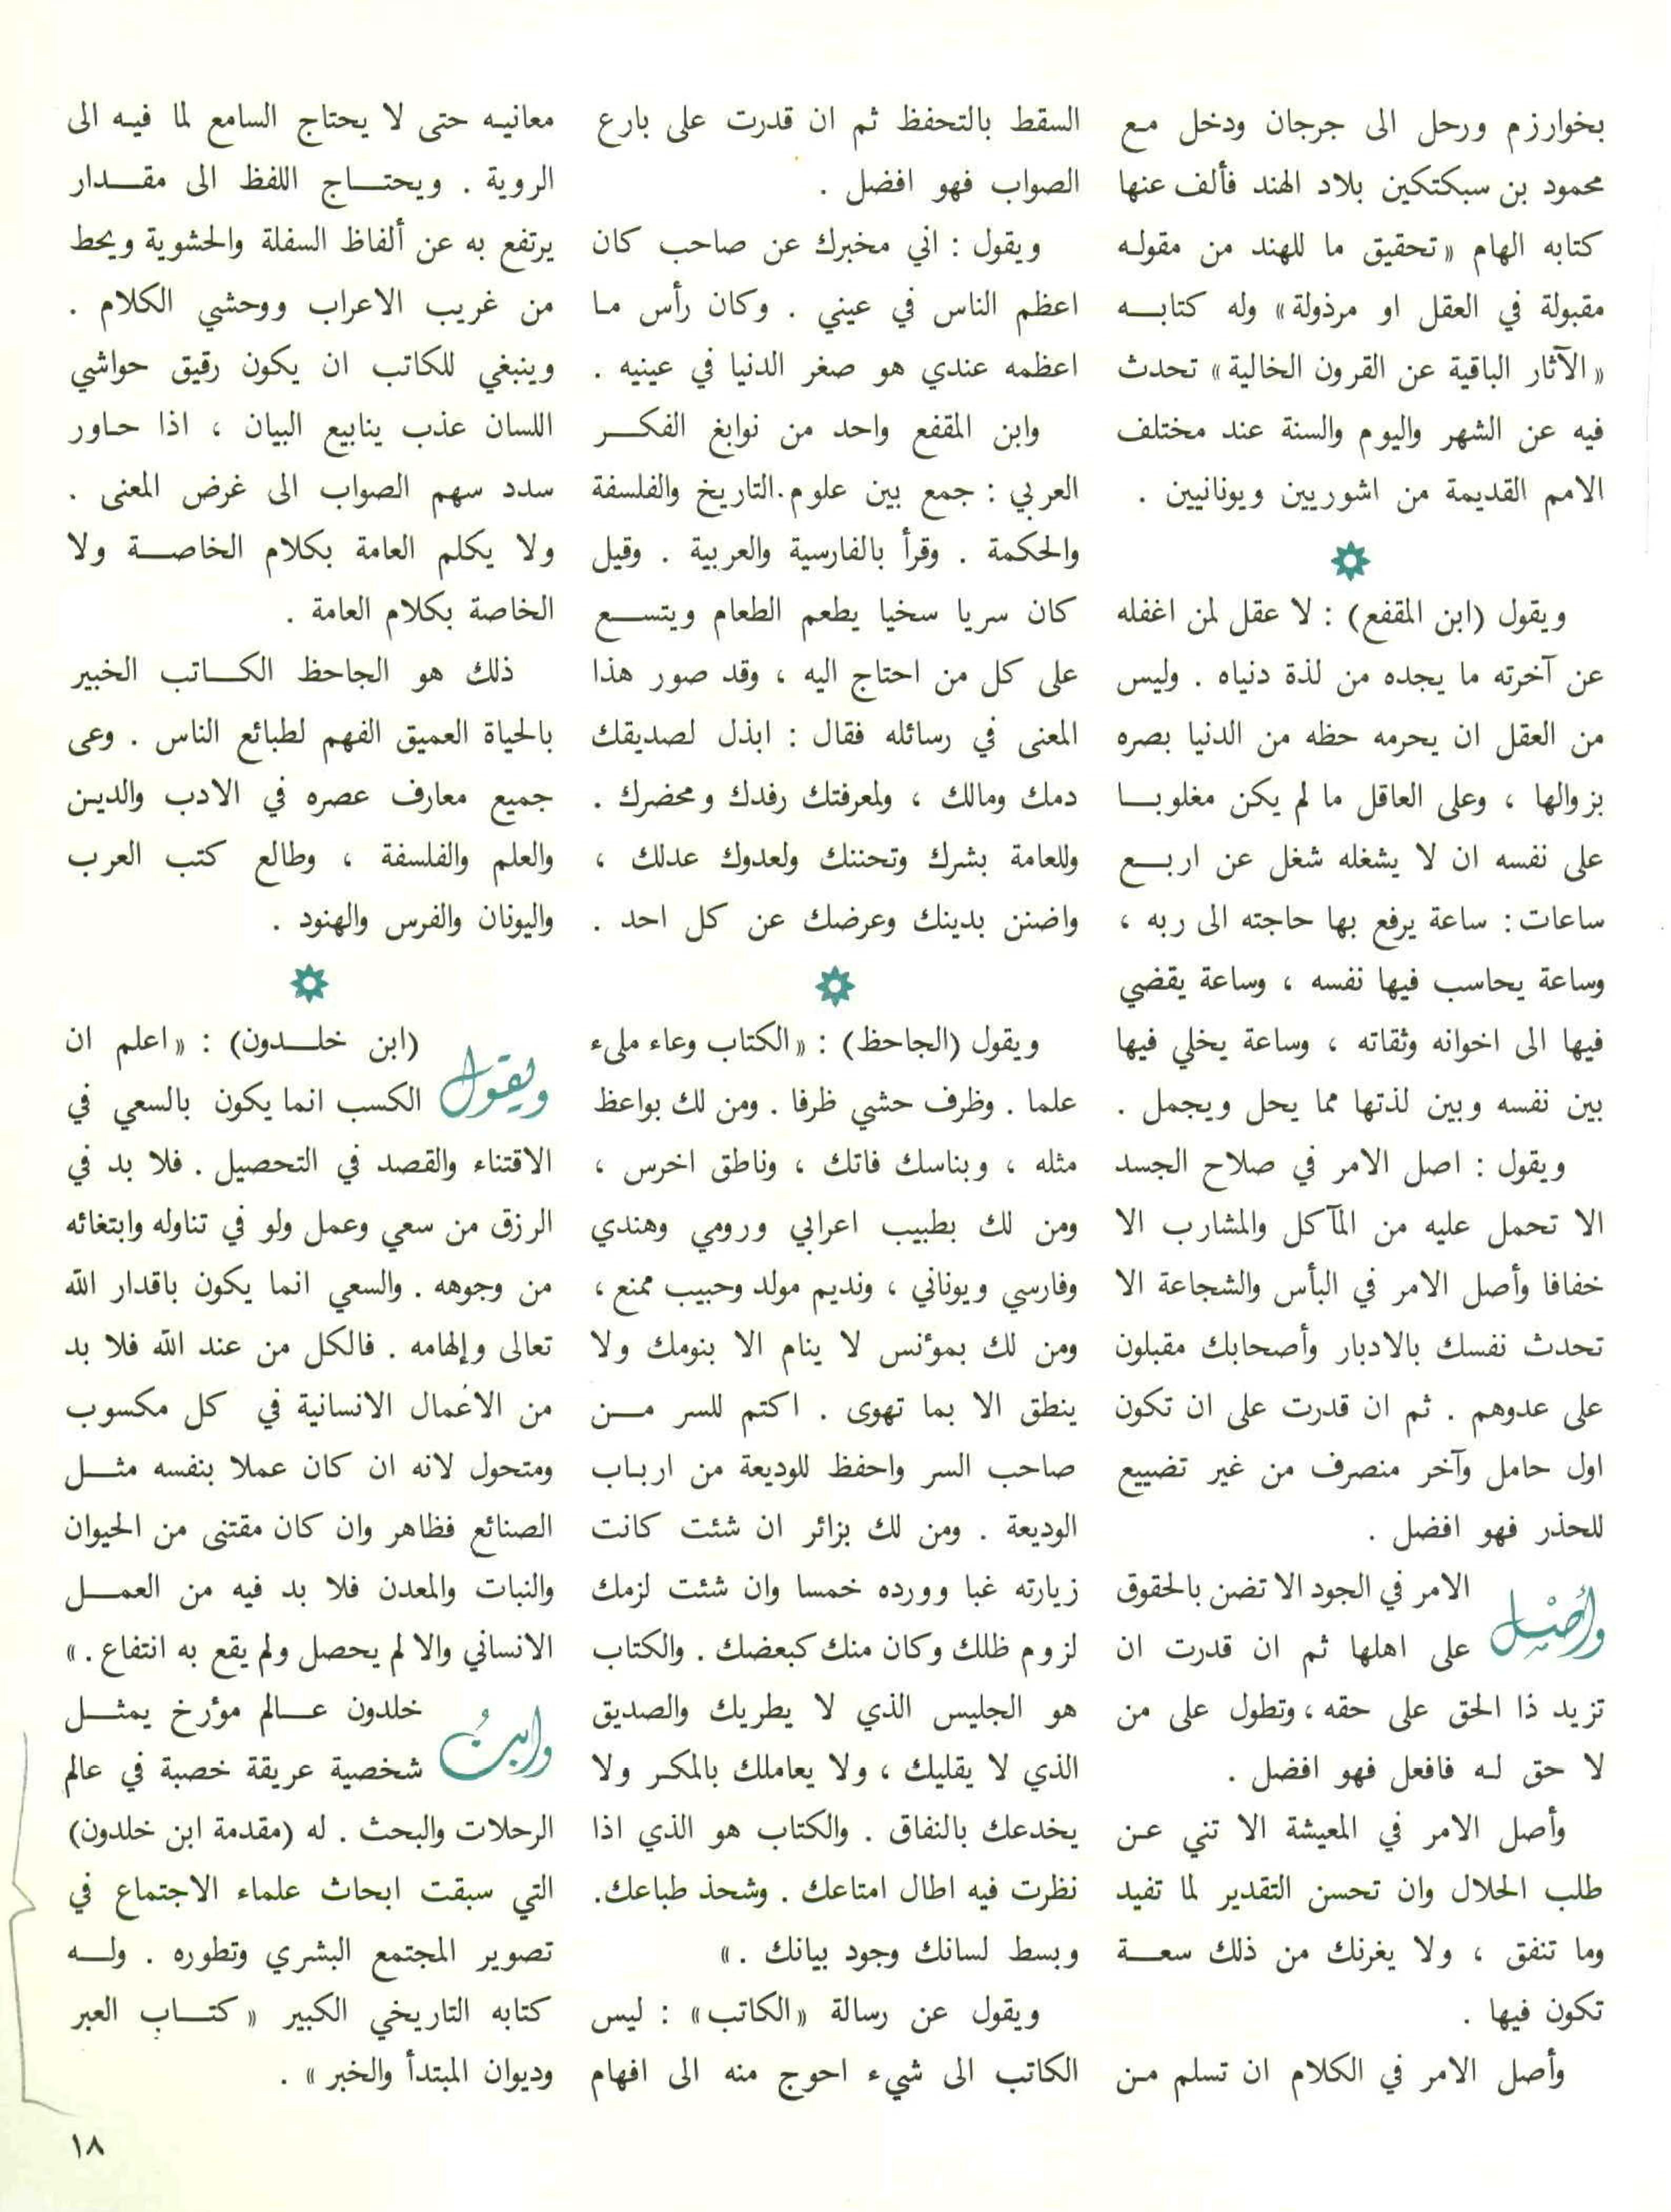 بخوارزم ورحل الى جرجان ودخل مع
محمود بن سبكتكين بلاد الهند فألف عنها
كتابه الهام «تحقيق ما للهند من مقوله
مقبولة في العقل او مرذولة» وله كتابه
«الآثار الباقية عن القرون الخالية» تحدث
فيه عن الشهر واليوم والسنة عند مختلف
الامم القديمة من اشوريين ويونانيين .
ويقول (ابن المقفع) : لا عقل لمن اغفله
عن آخرته ما يجده من لذة دنياه . وليس
من العقل ان يحرمه حظه من الدنيا بصره
بزوالها ، وعلى العاقل ما لم يكن مغلوبا
على نفسه ان لا يشغله شغل عن اربع
ساعات : ساعة يرفع بها حاجته الى ربه ،
وساعة يحاسب فيها نفسه ، وساعة يقضي
فيها الى اخوانه وثقاته ، وساعة يخلي فيها
بين نفسه وبين لذتها مما يحل ويجمل .
ويقول : اصل الامر في صلاح الجسد
الا تحمل عليه من المآكل والمشارب الا
خفافا وأصل الامر في البأس والشجاعة الا
تحدث نفسك بالادبار وأصحابك مقبلون
على عدوهم . ثم ان قدرت على ان تكون
اول حامل وآخر منصرف من غير تضييع
للحذر فهو افضل .
وأصل الامر في الجود الا تضن بالحقوق
على اهلها ثم ان قدرت ان
تزيد ذا الحق على حقه ، وتطول على من
لا حق له فافعل فهو افضل .
وأصل الامر في المعيشة الا تني عن
طلب الحلال وان تحسن التقدير لما تفيد
وما تنفق ، ولا يغرنك من ذلك سعة
تكون فيها .
وأصل الامر في الكلام ان تسلم من
السقط بالتحفظ ثم ان قدرت على بارع
الصواب فهو افضل .
ويقول : اني مخبرك عن صاحب كان
اعظم الناس في عيني . وكان رأس ما
اعظمه عندي هو صغر الدنيا في عينيه .
وابن المقفع واحد من نوابغ الفكر
العربي : جمع بين علوم التاريخ والفلسفة
والحكمة . وقرأ بالفارسية والعربية . وقيل
كان سريا سخيا يطعم الطعام ويتسع
على كل من احتاج اليه ، وقد صور هذا
المعنى في رسائله فقال : ابذل لصديقك
دمك ومالك ، ولمعرفتك رفدك ومحضرك .
وللعامة بشرك وتحننك ولعدوك عدلك ،
واضنن بدينك وعرضك عن كل احد .
ويقول (الجاحظ) : «الكتاب وعاء ملىء
علما . وظرف حشي ظرفا . ومن لك بواعظ
مثله ، وبناسك فاتك ، وناطق اخرس ،
ومن لك بطبيب اعرابي ورومي وهندي
وفارسي ويوناني ، ونديم مولد وحبيب ممنع ،
ومن لك بمؤنس لا ينام الا بنومك ولا
ينطق الا بما تهوى . اكتم للسر من
صاحب السر واحفظ للوديعة من ارباب
الوديعة . ومن لك بزائر ان شئت كانت
زيارته غبا وورده خمسا وان شئت لزمك
لزوم ظلك وكان منك كبعضك . والكتاب
هو الجليس الذي لا يطريك والصديق
الذي لا يقليك ، ولا يعاملك بالمكر ولا
يخدعك بالنفاق . والكتاب هو الذي اذا
نظرت فيه اطال امتاعك . وشحذ طباعك.
وبسط لسانك وجود بيانك .»
ويقول عن رسالة «الكاتب» : ليس
الكاتب الى شيء احوج منه الى افهام
معانيه حتى لا يحتاج السامع لما فيه الى
الروية . ويحتاج اللفظ الى مقدار
يرتفع به عن ألفاظ السفلة والحشوية ويحط
من غريب الاعراب ووحشي الكلام .
وينبغي للكاتب ان يكون رقيق حواشي
اللسان عذب ينابيع البيان ، اذا حاور
سدد سهم الصواب الى غرض المعنى .
ولا يكلم العامة بكلام الخاصة ولا
الخاصة بكلام العامة .
ذلك هو الجاحظ الكاتب الخبير
بالحياة العميق الفهم لطبائع الناس . وعى
جميع معارف عصره في الادب والدين
والعلم والفلسفة ، وطالع كتب العرب
واليونان والفرس والهنود .
ويقول (ابن خلدون) : «اعلم ان
الكسب انما يكون بالسعي في
الاقتناء والقصد في التحصيل . فلا بد في
الرزق من سعي وعمل ولو في تناوله وابتغائه
من وجوهه . والسعي انما يكون باقدار الله
تعالى وإلهامه . فالكل من عند الله فلا بد
من الاعمال الانسانية في كل مكسوب
ومتحول لانه ان كان عملا بنفسه مثل
الصنائع فظاهر وان كان مقتنى من الحيوان
والنبات والمعدن فلا بد فيه من العمل
الانساني والا لم يحصل ولم يقع به انتفاع .»
وابن خلدون عالم مؤرخ يمثل
شخصية عريقة خصبة في عالم
الرحلات والبحث . له (مقدمة ابن خلدون)
التي سبقت ابحاث علماء الاجتماع في
تصوير المجتمع البشري وتطوره . وله
كتابه التاريخي الكبير «كتاب العبر
وديوان المبتدأ والخبر» .
١٨